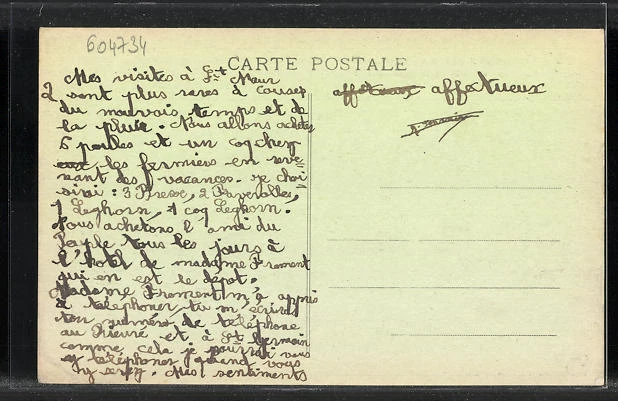 604734
CARTE POSTALE
Mes visites à St Maur
2 sont plus rares à cause
du mauvais temps et de
la pluie. Nous allons acheter
5 poules et un coq chez
les fermiers en reve-
nant des vacances. je choi-
sirai : 3 Bresse, 2 Faverolles,
1 Leghorn, 1 coq Leghorn.
Nous achetons l'ami du
Peuple tous les jours à
l'hôtel de madame Froment
qui en est le dépot.
Madame Froment m'a appris
à téléphoner tu m'écriras
ton numéro de téléphone
au Prieuré et à St Germain
comme cela je pourrai vous
téléphoner quand vous
y serez. Mes sentiments
affectueux